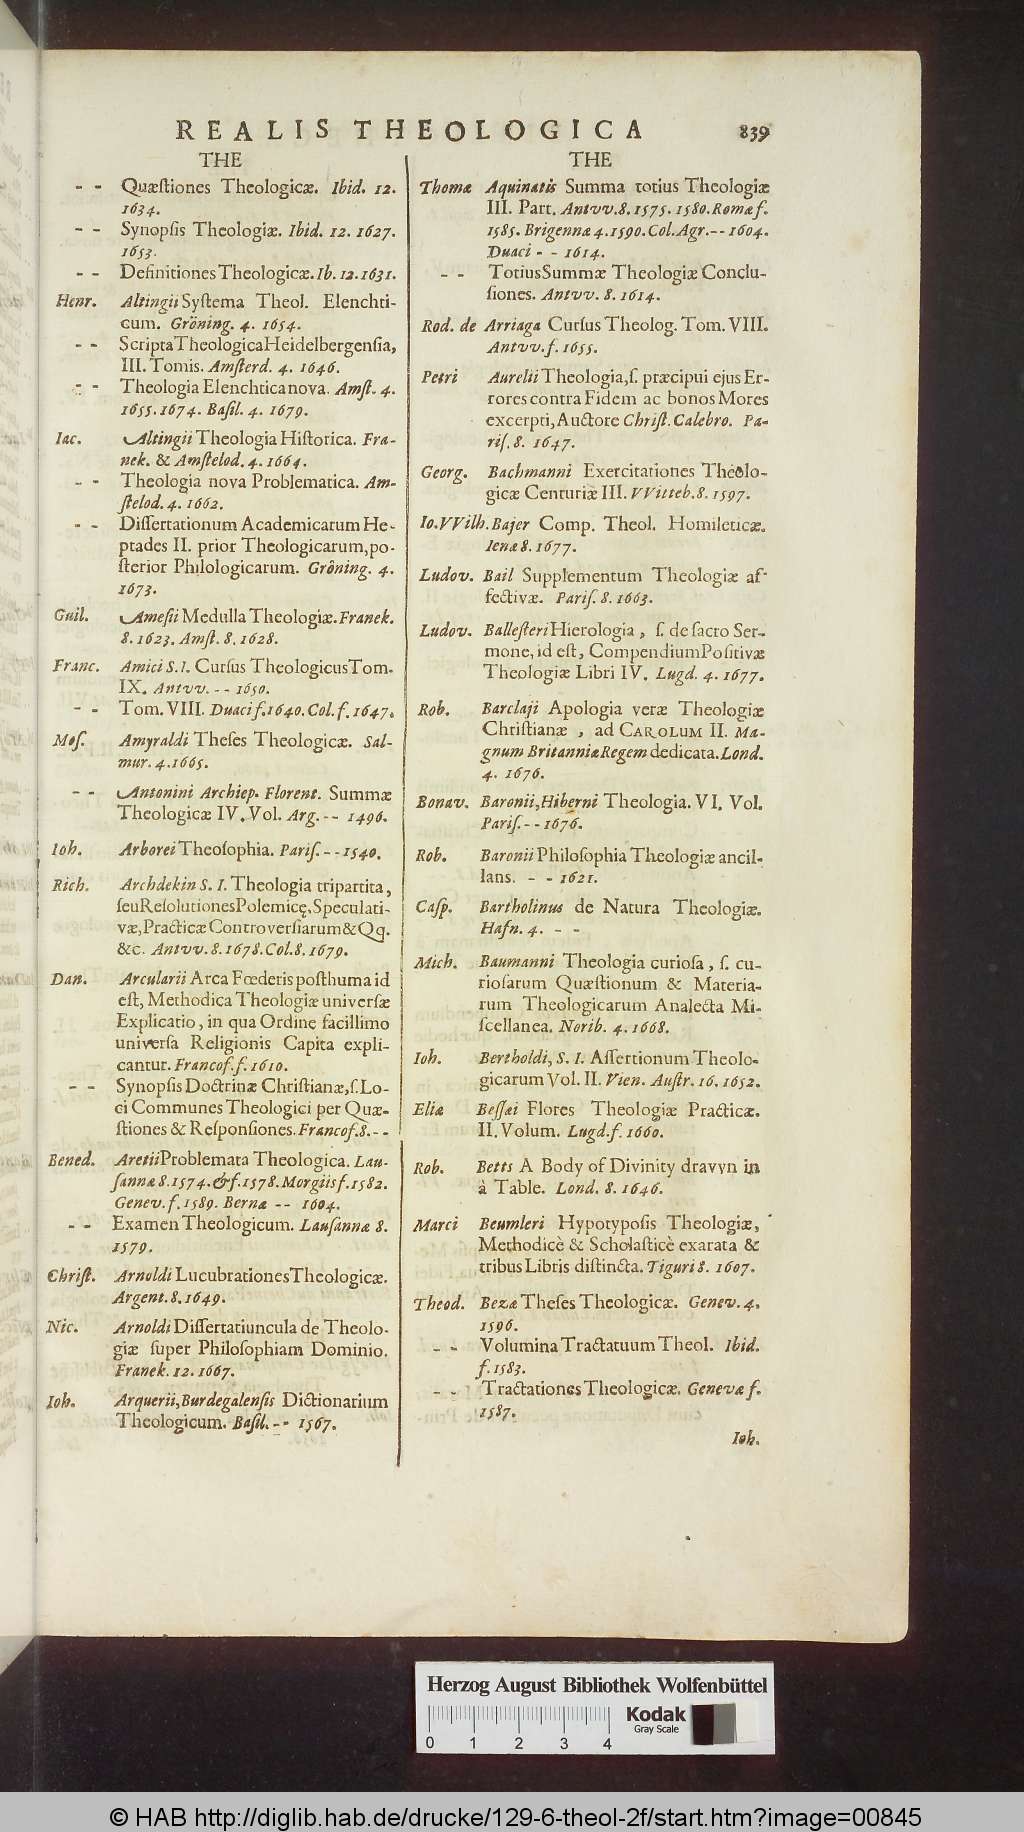 REALIS THEOLOGICA 839
THE
- - Quæſtiones Theologicæ. Ibid. 12.
1634.
- - Synopſis Theologiæ. Ibid. 12. 1627.
1653.
- - Definitiones Theologicæ. Ib. 12. 1631.
Henr. Altingii Syſtema Theol. Elenchti-
cum. Gröning. 4. 1654.
- - Scripta Theologica Heidelbergenſia,
III. Tomis. Amſterd. 4. 1646.
- - Theologia Elenchtica nova. Amſt. 4.
1655. 1674. Baſil. 4. 1679.
Iac. Altingii Theologia Hiſtorica. Fra-
nek. & Amſtelod. 4. 1664.
- - Theologia nova Problematica. Am-
ſtelod. 4. 1662.
- - Diſſertationum Academicarum He-
ptades II. prior Theologicarum, po-
ſterior Philologicarum. Gröning. 4.
1673.
Guil. Ameſii Medulla Theologiæ. Franek.
8. 1623. Amſt. 8. 1628.
Franc. Amici S. I. Curſus Theologicus Tom.
IX. Antvv. - - 1650.
- - Tom. VIII. Duaci f. 1640. Col. f. 1647.
Moſ. Amyraldi Theſes Theologicæ. Sal-
mur. 4. 1665.
- - Antonini Archiep. Florent. Summæ
Theologicæ IV. Vol. Arg. - - 1496.
Ioh. Arborei Theoſophia. Pariſ. - - 1540.
Rich. Archdekin S. I. Theologia tripartita,
ſeu Reſolutiones Polemicę, Speculati-
væ, Practicæ Controverſiarum & Qq.
&c. Antvv. 8. 1678. Col. 8. 1679.
Dan. Arcularii Arca Fœderis poſthuma id
eſt, Methodica Theologiæ univerſæ
Explicatio, in qua Ordine facillimo
univerſa Religionis Capita expli-
cantur. Francof. f. 1610.
- - Synopſis Doctrinæ Chriſtianæ, ſ. Lo-
ci Communes Theologici per Quæ-
ſtiones & Reſponſiones. Francof. 8. - -
Bened. Aretii Problemata Theologica. Lau-
ſannæ 8. 1574. & f. 1578. Morgiis f. 1582.
Genev. f. 1589. Bernæ - - 1604.
- - Examen Theologicum. Lauſannæ 8.
1579.
Chriſt. Arnoldi Lucubrationes Theologicæ.
Argent. 8. 1649.
Nic. Arnoldi Diſſertatiuncula de Theolo-
giæ ſuper Philoſophiam Dominio.
Franek. 12. 1667.
Ioh. Arquerii, Burdegalenſis Dictionarium
Theologicum. Baſil. - - 1567.
THE
Thomæ Aquinatis Summa totius Theologiæ
III. Part. Antvv. 8. 1575. 1580. Romæ f.
1585. Brigennæ 4. 1590. Col. Agr. - - 1604.
Duaci - - 1614.
- - Totius Summæ Theologiæ Conclu-
ſiones. Antvv. 8. 1614.
Rod. de Arriaga Curſus Theolog. Tom. VIII.
Antvv. f. 1655.
Petri Aurelii Theologia, ſ. præcipui ejus Er-
rores contra Fidem ac bonos Mores
excerpti, Auctore Chriſt. Calebro. Pa-
riſ. 8. 1647.
Georg. Bachmanni Exercitationes Theolo-
gicæ Centuriæ III. VVitteb. 8. 1597.
Io. VVilh. Bajer Comp. Theol. Homileticæ.
Ienæ 8. 1677.
Ludov. Bail Supplementum Theologiæ af-
fectivæ. Pariſ. 8. 1663.
Ludov. Balleſteri Hierologia, ſ. de ſacro Ser-
mone, id eſt, Compendium Poſitivæ
Theologiæ Libri IV. Lugd. 4. 1677.
Rob. Barclaji Apologia veræ Theologiæ
Chriſtianæ, ad CAROLUM II. Ma-
gnum Britanniæ Regem dedicata. Lond.
4. 1676.
Bonav. Baronii, Hiberni Theologia. VI. Vol.
Pariſ. - - 1676.
Rob. Baronii Philoſophia Theologiæ ancil-
lans. - - 1621.
Caſp. Bartholinus de Natura Theologiæ.
Hafn. 4. - -
Mich. Baumanni Theologia curioſa, ſ. cu-
rioſarum Quæſtionum & Materia-
rum Theologicarum Analecta Mi-
ſcellanea. Norib. 4. 1668.
Ioh. Bertholdi, S. I. Aſſertionum Theolo-
gicarum Vol. II. Vien. Auſtr. 16. 1652.
Eliæ Beſſæi Flores Theologiæ Practicæ.
II. Volum. Lugd. f. 1660.
Rob. Betts A Body of Divinity dravvn in
à Table. Lond. 8. 1646.
Marci Beumleri Hypotypoſis Theologiæ,
Methodicè & Scholaſticè exarata &
tribus Libris diſtincta. Tiguri 8. 1607.
Theod. Bezæ Theſes Theologicæ. Genev. 4.
1596.
- - Volumina Tractatuum Theol. Ibid.
f. 1583.
- - Tractationes Theologicæ. Genevæ f.
1587.
Ioh.
Herzog August Bibliothek Wolfenbüttel
Kodak
Gray Scale
0 1 2 3 4
© HAB http://diglib.hab.de/drucke/129-6-theol-2f/start.htm?image=00845